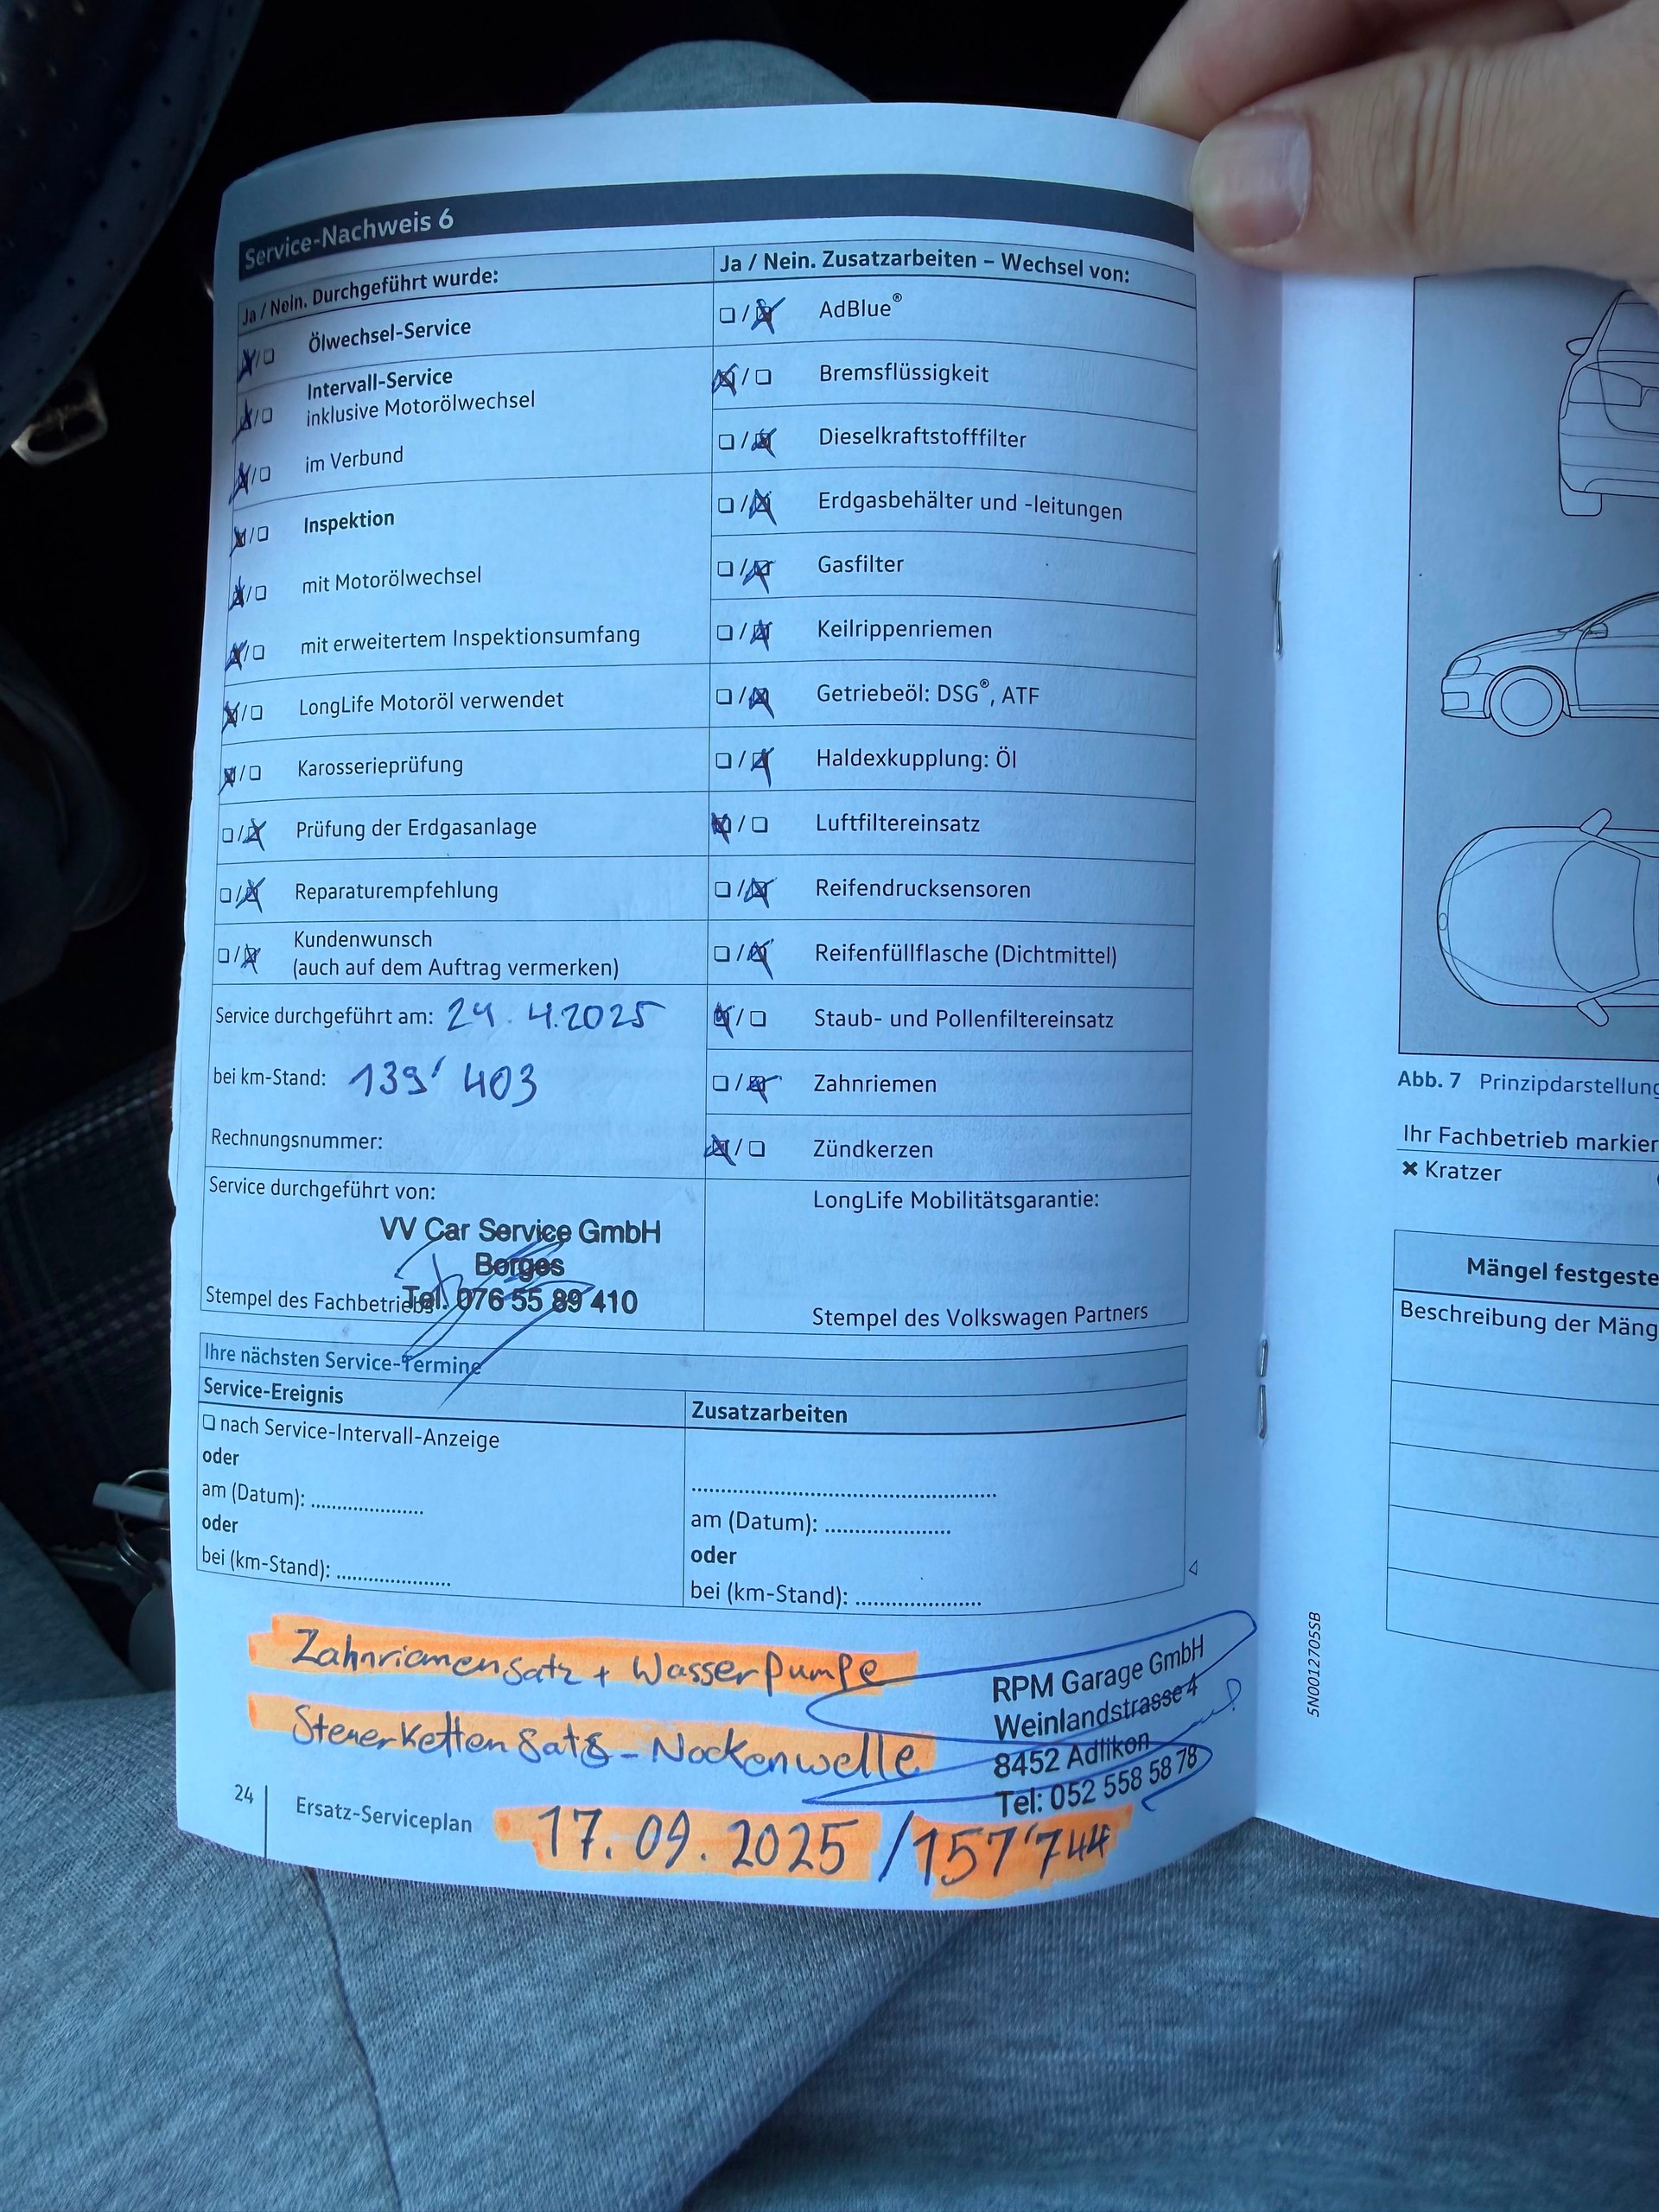 Service-Nachweis 6
Ja / Nein. Durchgeführt wurde:
☒/☐ Ölwechsel-Service
☒/☐ Intervall-Service
inklusive Motorölwechsel
☒/☐ im Verbund
☒/☐ Inspektion
☒/☐ mit Motorölwechsel
☒/☐ mit erweitertem Inspektionsumfang
☒/☐ LongLife Motoröl verwendet
☒/☐ Karosserieprüfung
☐/☒ Prüfung der Erdgasanlage
☐/☒ Reparaturempfehlung
☐/☒ Kundenwunsch
(auch auf dem Auftrag vermerken)
Service durchgeführt am: 24.4.2025
bei km-Stand: 139'403
Rechnungsnummer:
Service durchgeführt von:
VV Car Service GmbH
Borges
Tel. 076 55 89 410
Stempel des Fachbetriebs
Ja / Nein. Zusatzarbeiten – Wechsel von:
☐/☒ AdBlue®
☒/☐ Bremsflüssigkeit
☐/☒ Dieselkraftstofffilter
☐/☒ Erdgasbehälter und -leitungen
☐/☒ Gasfilter
☐/☒ Keilrippenriemen
☐/☒ Getriebeöl: DSG®, ATF
☐/☒ Haldexkupplung: Öl
☒/☐ Luftfiltereinsatz
☐/☒ Reifendrucksensoren
☐/☒ Reifenfüllflasche (Dichtmittel)
☒/☐ Staub- und Pollenfiltereinsatz
☐/☒ Zahnriemen
☒/☐ Zündkerzen
LongLife Mobilitätsgarantie:
Stempel des Volkswagen Partners
Ihre nächsten Service-Termine
Service-Ereignis
☐ nach Service-Intervall-Anzeige
oder
am (Datum): ....................
oder
bei (km-Stand): ....................
Zusatzarbeiten
..................................................
am (Datum): ....................
oder
bei (km-Stand): ....................
Zahnriemensatz + Wasserpumpe
Steuerkettensatz - Nockenwelle
RPM Garage GmbH
Weinlandstrasse 4
8452 Adlikon
Tel: 052 558 58 78
17.09.2025 / 157'744
24
Ersatz-Serviceplan
5N0012705SB
Abb. 7 Prinzipdarstellung
Ihr Fachbetrieb markier
✖ Kratzer
Mängel festgeste
Beschreibung der Mäng